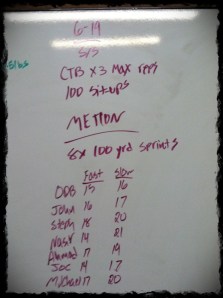 6-19
S/S
CTB x 3 Max reps
100 situps
METCON
8x 100 yrd sprints
Fast Slow
ODB 15 16
John 16 17
Steph 18 20
Nasr 14 21
Ahmad 17 19
Joe 14 17
17 20